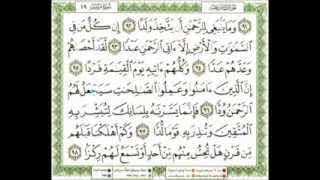 ١٩
وَمَا يَنۢبَغِي لِلرَّحْمَٰنِ أَن يَتَّخِذَ وَلَدًا ٩٢ إِن كُلُّ مَن فِي
ٱلسَّمَٰوَٰتِ وَٱلْأَرْضِ إِلَّآ ءَاتِي ٱلرَّحْمَٰنِ عَبْدًا ٩٣ لَّقَدْ أَحْصَىٰهُمْ
وَعَدَّهُمْ عَدًّا ٩٤ وَكُلُّهُمْ ءَاتِيهِ يَوْمَ ٱلْقِيَٰمَةِ فَرْدًا ٩٥
إِنَّ ٱلَّذِينَ ءَامَنُوا۟ وَعَمِلُوا۟ ٱلصَّٰلِحَٰتِ سَيَجْعَلُ لَهُمُ
ٱلرَّحْمَٰنُ وُدًّا ٩٦ فَإِنَّمَا يَسَّرْنَٰهُ بِلِسَانِكَ لِتُبَشِّرَ بِهِ
ٱلْمُتَّقِينَ وَتُنذِرَ بِهِۦ قَوْمًا لُّدًّا ٩٧ وَكَمْ أَهْلَكْنَا قَبْلَهُم
مِّن قَرْنٍ هَلْ تُحِسُّ مِنْهُم مِّنْ أَحَدٍ أَوْ تَسْمَعُ لَهُمْ رِكْزًا ٩٨